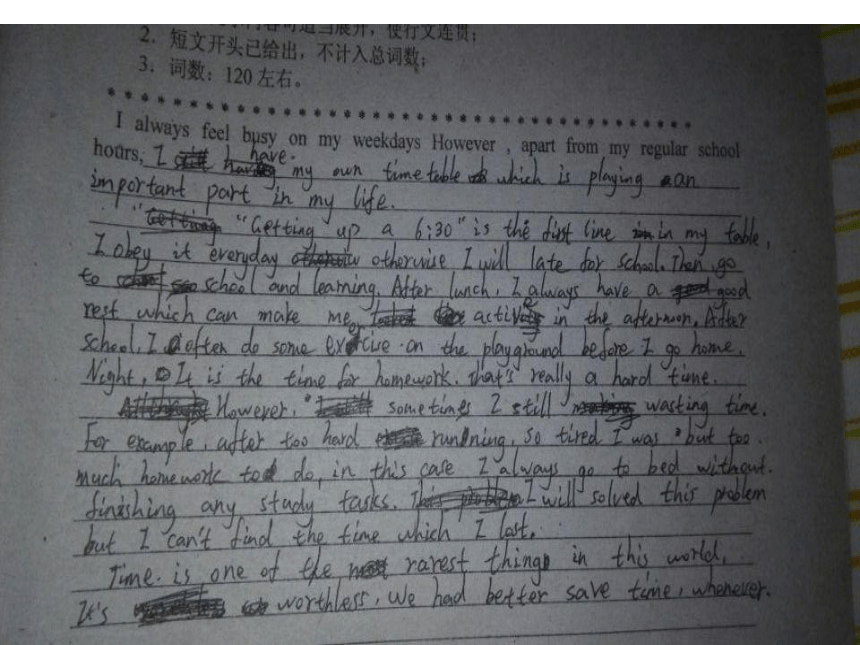 使行文连贯;
2. 短文开头已给出，不计入总词数;
3. 词数: 120左右。
I always feel busy on my weekdays However , apart from my regular school
hours, I have my own time table which is playing an
important part in my life.
"Getting up a 6:30" is the first line in my table,
I obey it everyday otherwise I will late for school. Then go
to school and learning. After lunch, I always have a good
rest which can make me active in the afternoon. After
school, I often do some exercise on the playground before I go home.
Night, It is the time for homework. That's really a hard time.
However, sometimes I still wasting time.
For example, after too hard running, so tired I was, but too
much homework to do, in this case I always go to bed without
finishing any study tasks. I will solved this problem
but I can't find the time which I lost.
Time is one of the rarest things in this world,
It's worthless, We had better save time, whenever.